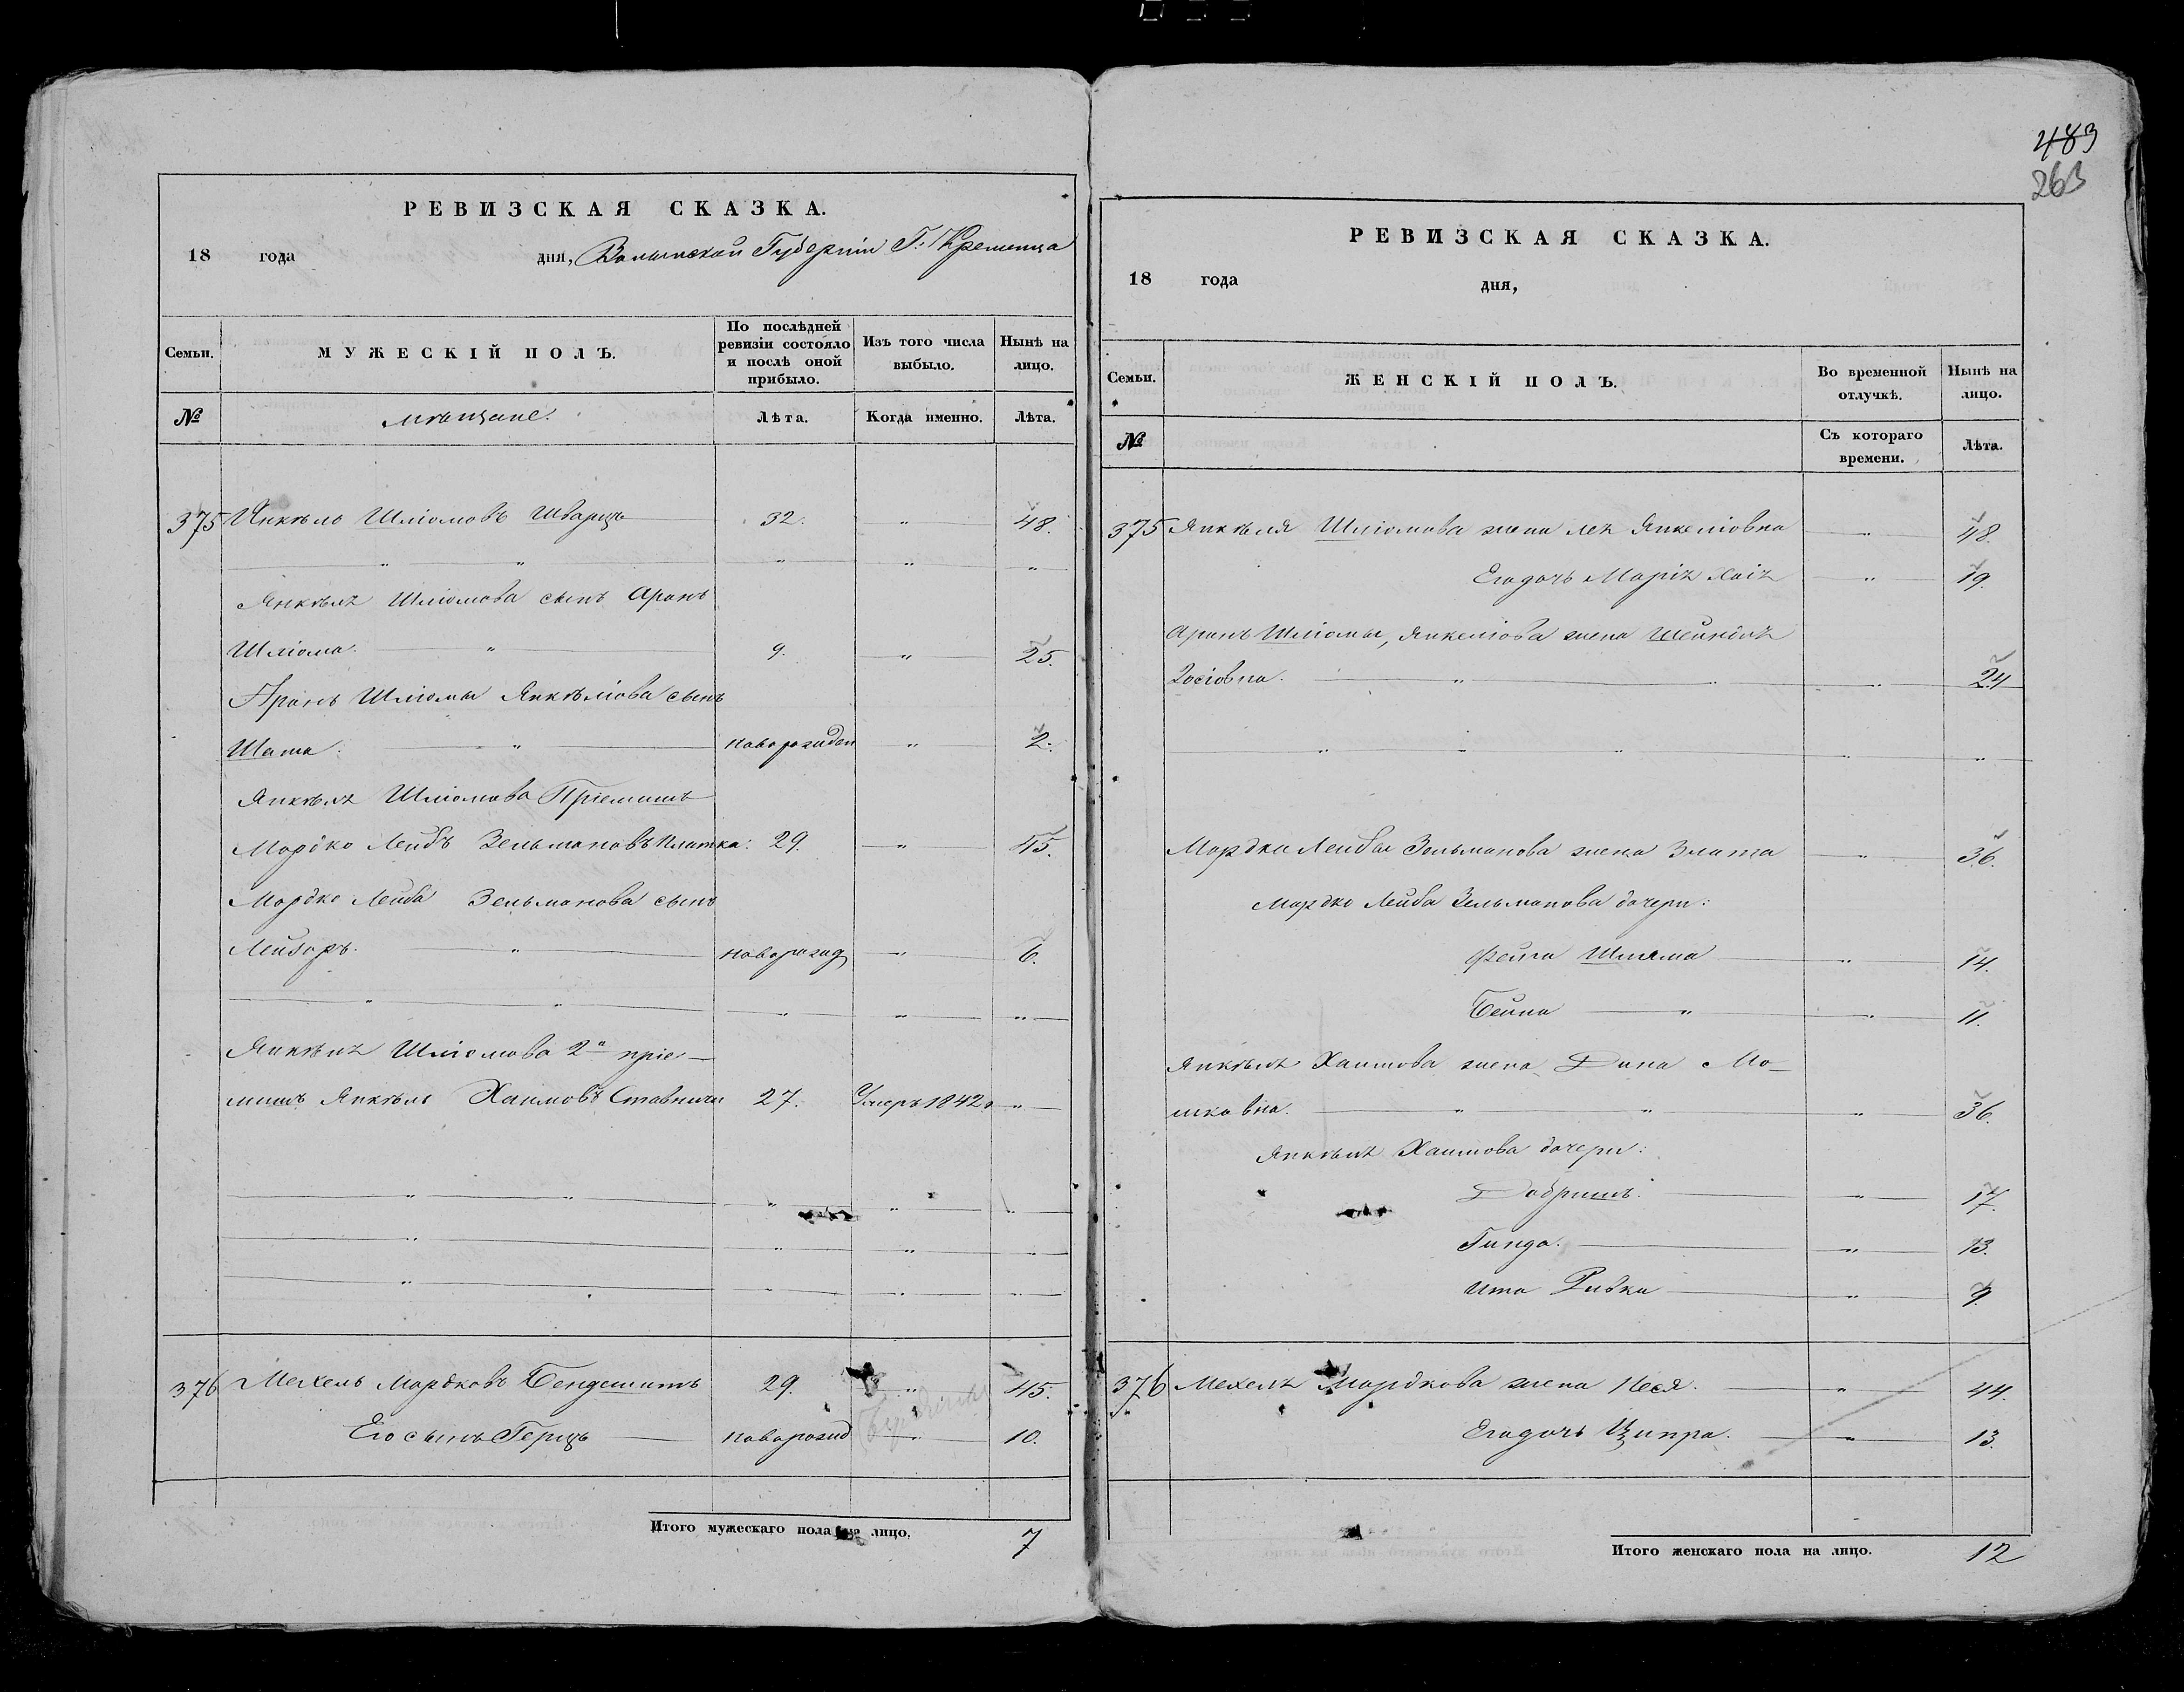 483
263
РЕВИЗСКАЯ СКАЗКА.
18 года дня, Волынской Губерніи Г. Кременца
Семьи. МУЖЕСКІЙ ПОЛЪ. По послѣдней ревизіи состояло и послѣ оной прибыло. Изъ того числа выбыло. Нынѣ на лицо.
№ Мѣщане. Лѣта. Когда именно. Лѣта.
375 Янкель Шліомовъ Шварцъ 32. " 48.
Янкеля Шліомова сынъ Аронъ
Шліома. " 9. " 25.
Аронъ Шліомы Янкеліова сынъ
Шама. " новорожден " 2.
Янкеля Шліомова Пріемышъ
Мордко Лейбъ Зельмановъ Платка: 29. " 45.
Мордко Лейба Зельманова сынъ
Лейзоръ. " новорожд " 6.
Янкеля Шліомова 2й пріе-
мышъ Янкель Хаимовъ 27. Умеръ 1842 "
376 Мехель Мордковъ 29. " 45.
Его сынъ Герцъ новорожд " 10.
Итого мужескаго пола на лицо. 7
РЕВИЗСКАЯ СКАЗКА.
18 года дня,
Семьи. ЖЕНСКІЙ ПОЛЪ. Во временной отлучкѣ. Нынѣ на лицо.
№ Съ котораго времени. Лѣта.
375 Янкеля Шліомова жена Лея Янкеліовна " 48.
Его дочь Марія Хаія " 19.
Аронъ Шліомы, Янкеліова жена Шейндля
Іосіовна. " " 24
Мордки Лейбы Зельманова жена Злата " 36.
Мордко Лейба Зельманова дочери:
Фейга Шляма " 14.
Бейна " " 11.
Янкеля Хаимова жена Дина Мо-
шковна. " " " 36.
Янкеля Хаимова дочери:
Добришъ. " 17.
Гинда. " 13.
Ита Ривка " 9.
376 Мехеля Мордкова жена Песя. " 44.
Его дочь Ципра. " 13.
Итого женскаго пола на лицо. 12